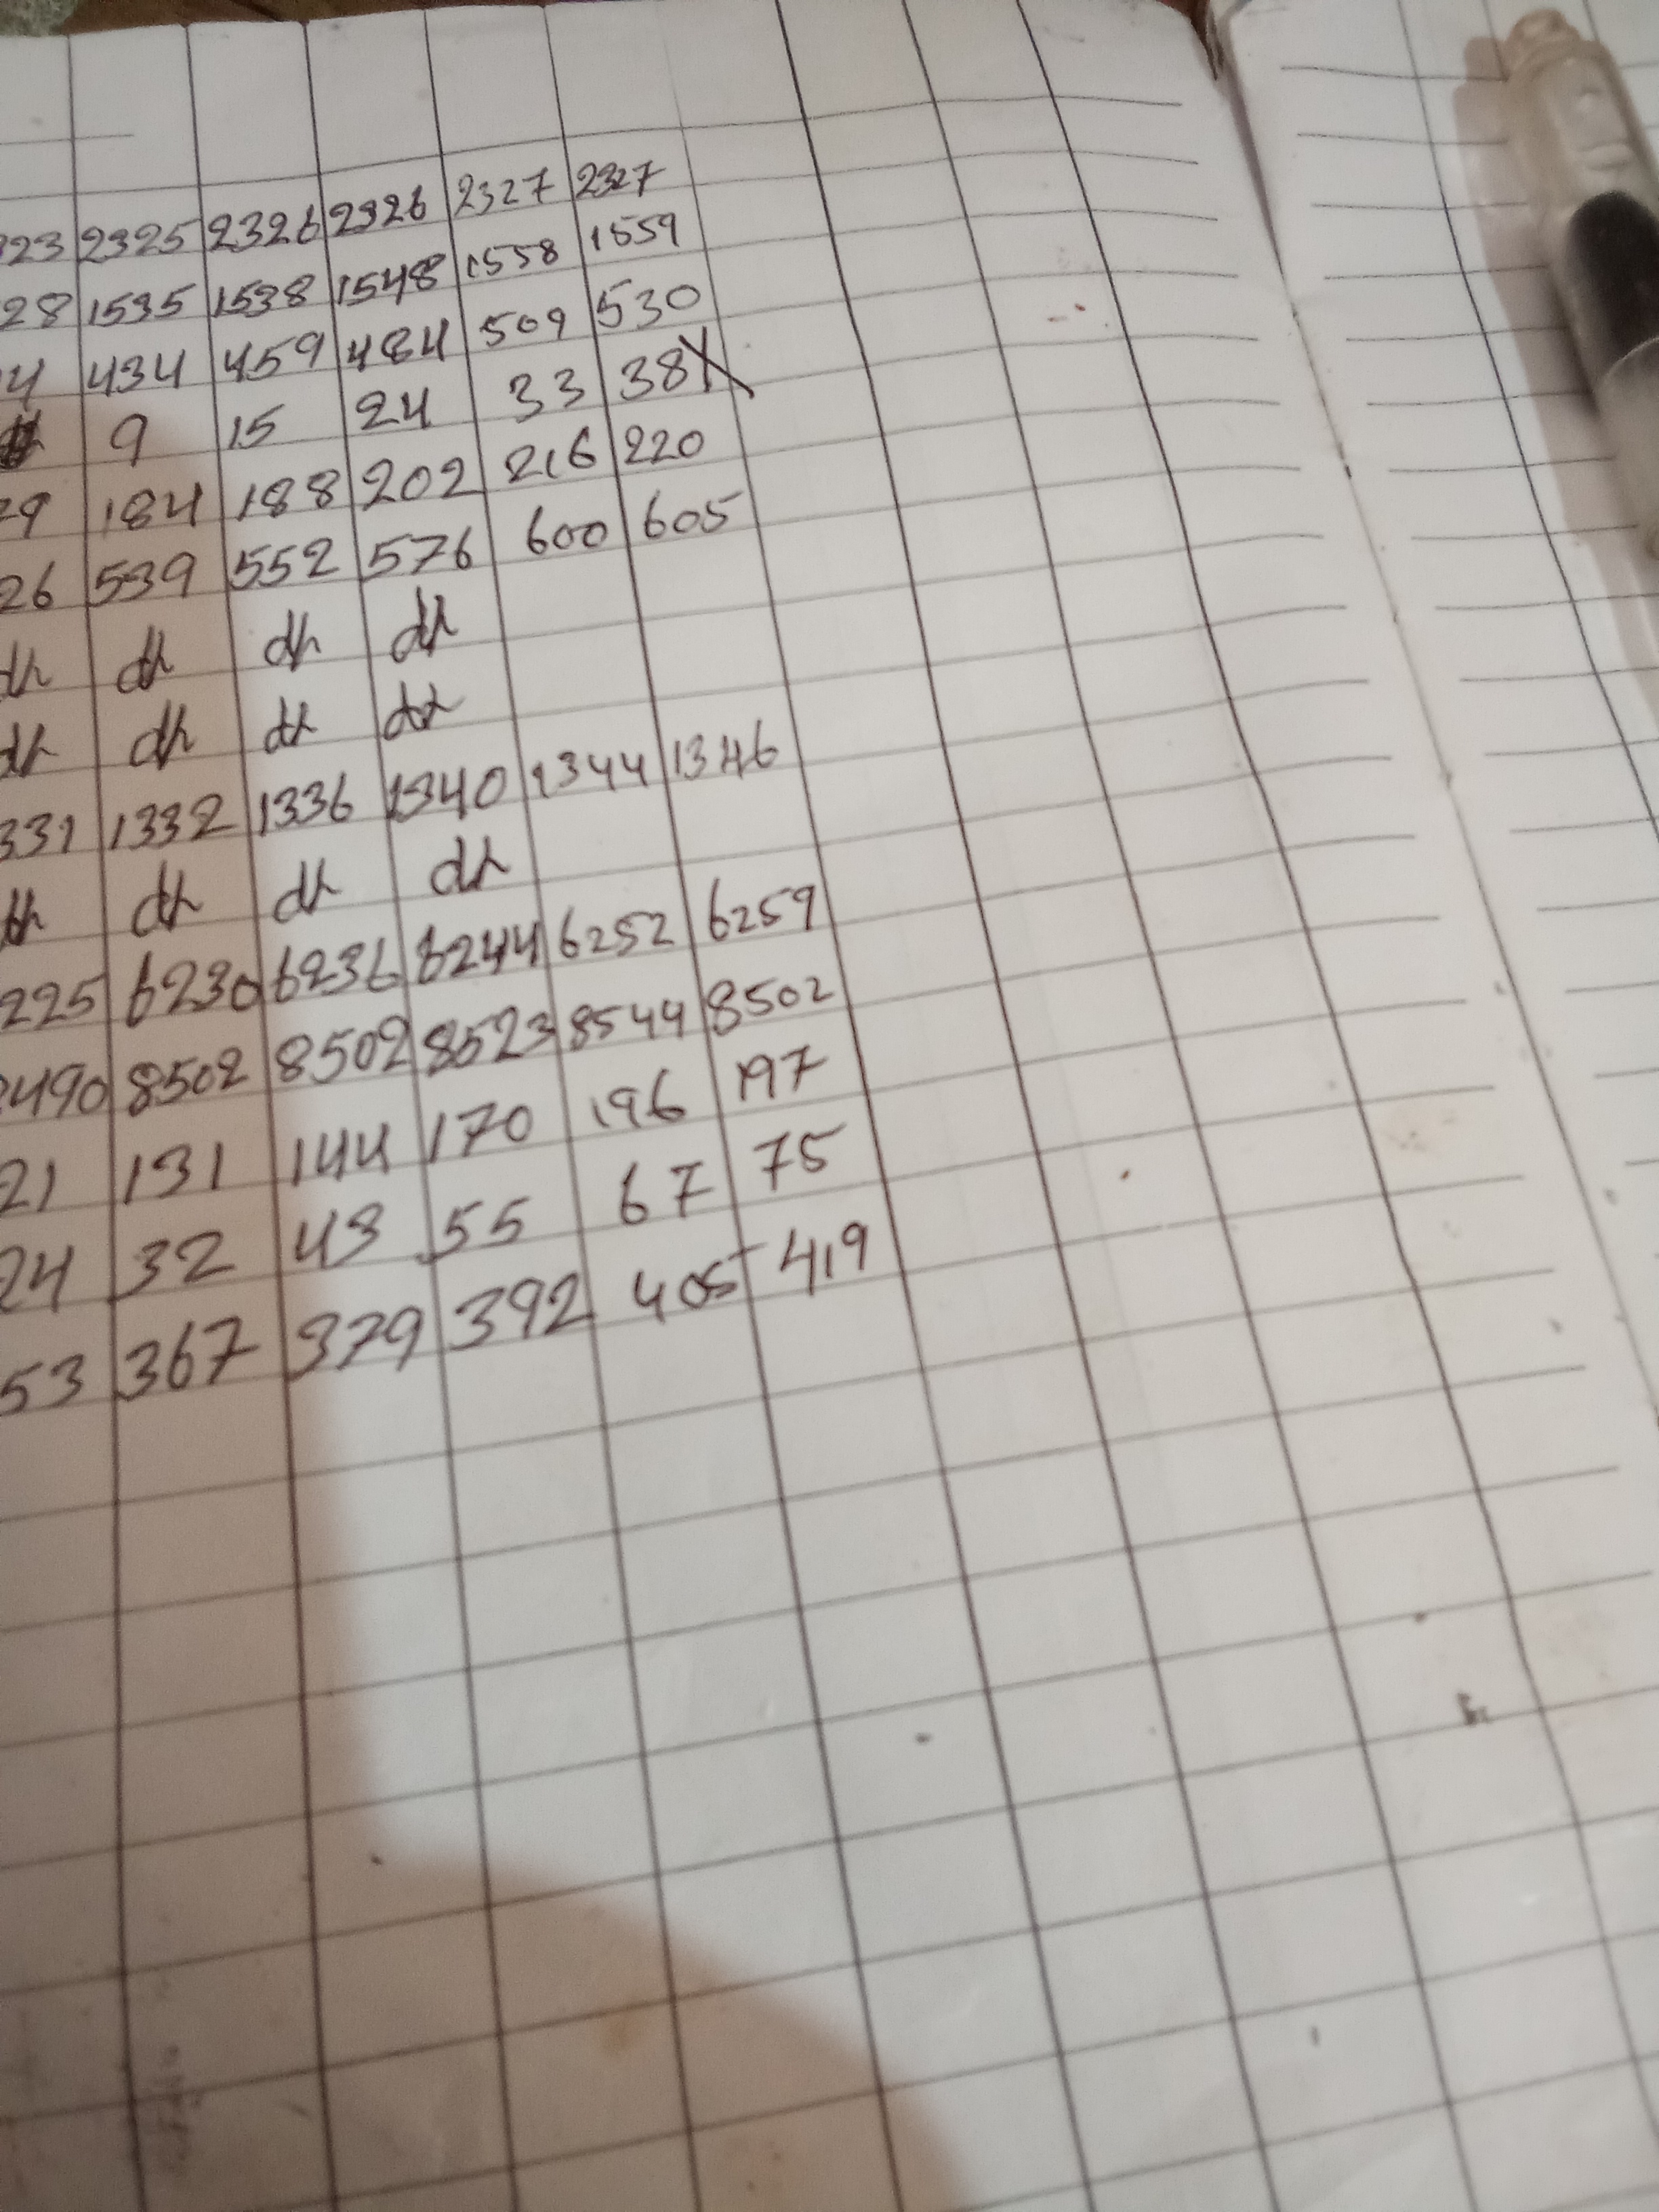 23 2325 2326 2326 2327 2327
28 1535 1538 1548 1558 1559
4 434 459 484 509 530
9 15 24 33 38
29 184 188 202 216 220
26 539 552 576 600 605
dh dh dh dh
dh dh dh dh
331 1332 1336 1340 1344 1346
dh dh dh dh
225 6230 6236 6244 6252 6259
490 8502 8502 8523 8544 8502
21 131 144 170 196 197
24 32 43 55 67 75
53 367 379 392 405 419